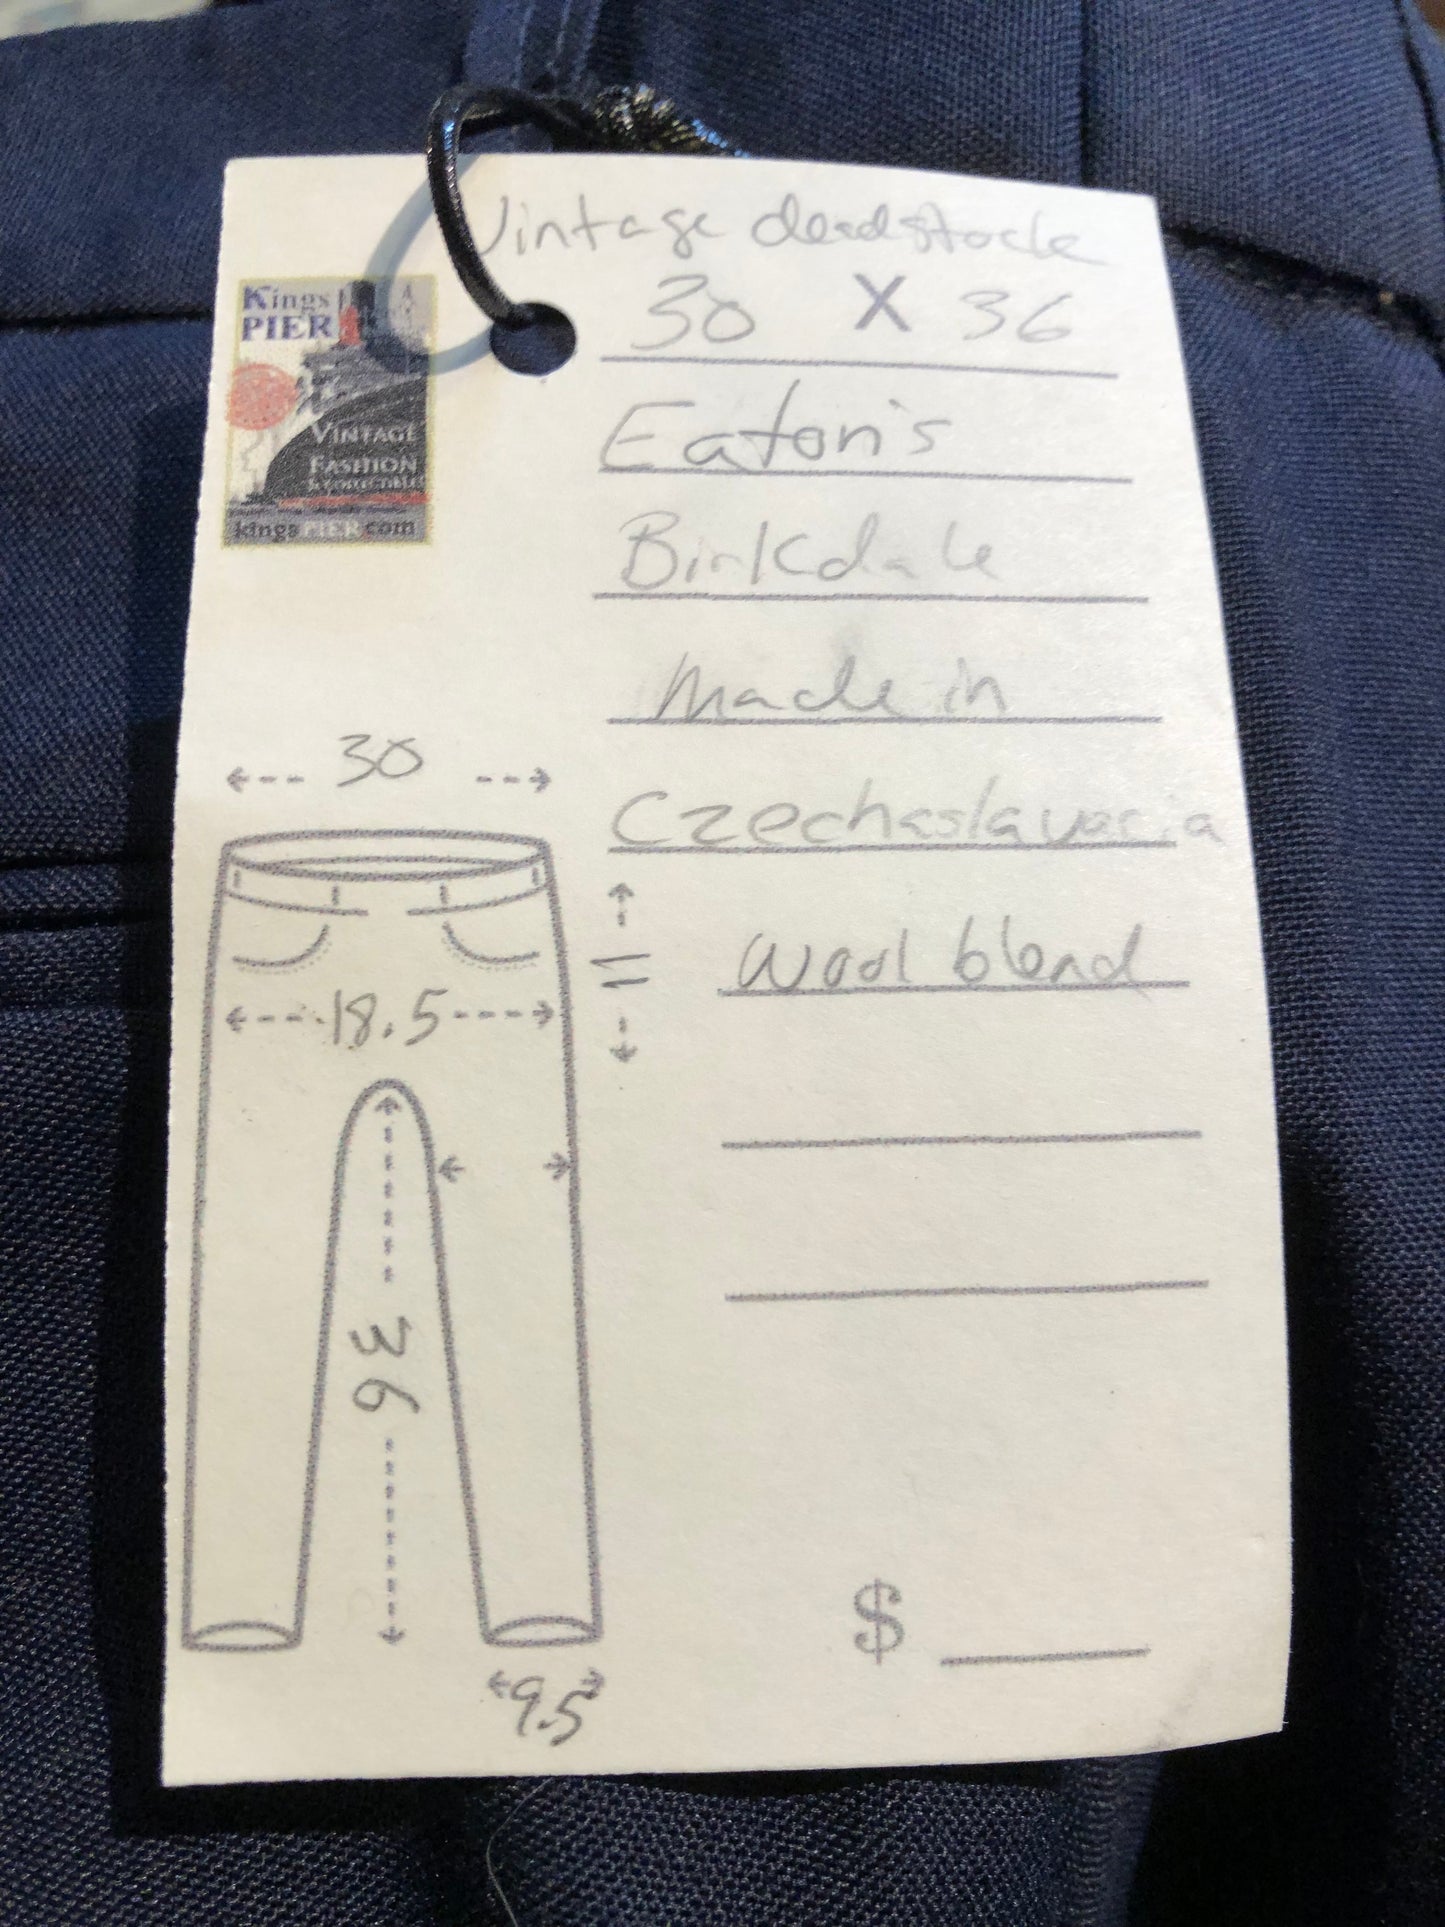 Vintage deadstock
30 X 36
Eaton's
Birkdale
Made in
Czechoslavacia
Wool blend
Kings
PIER
VINTAGE
FASHION
& COLLECTIBLES
kingsPIER.com
30
11
18.5
36
9.5
$